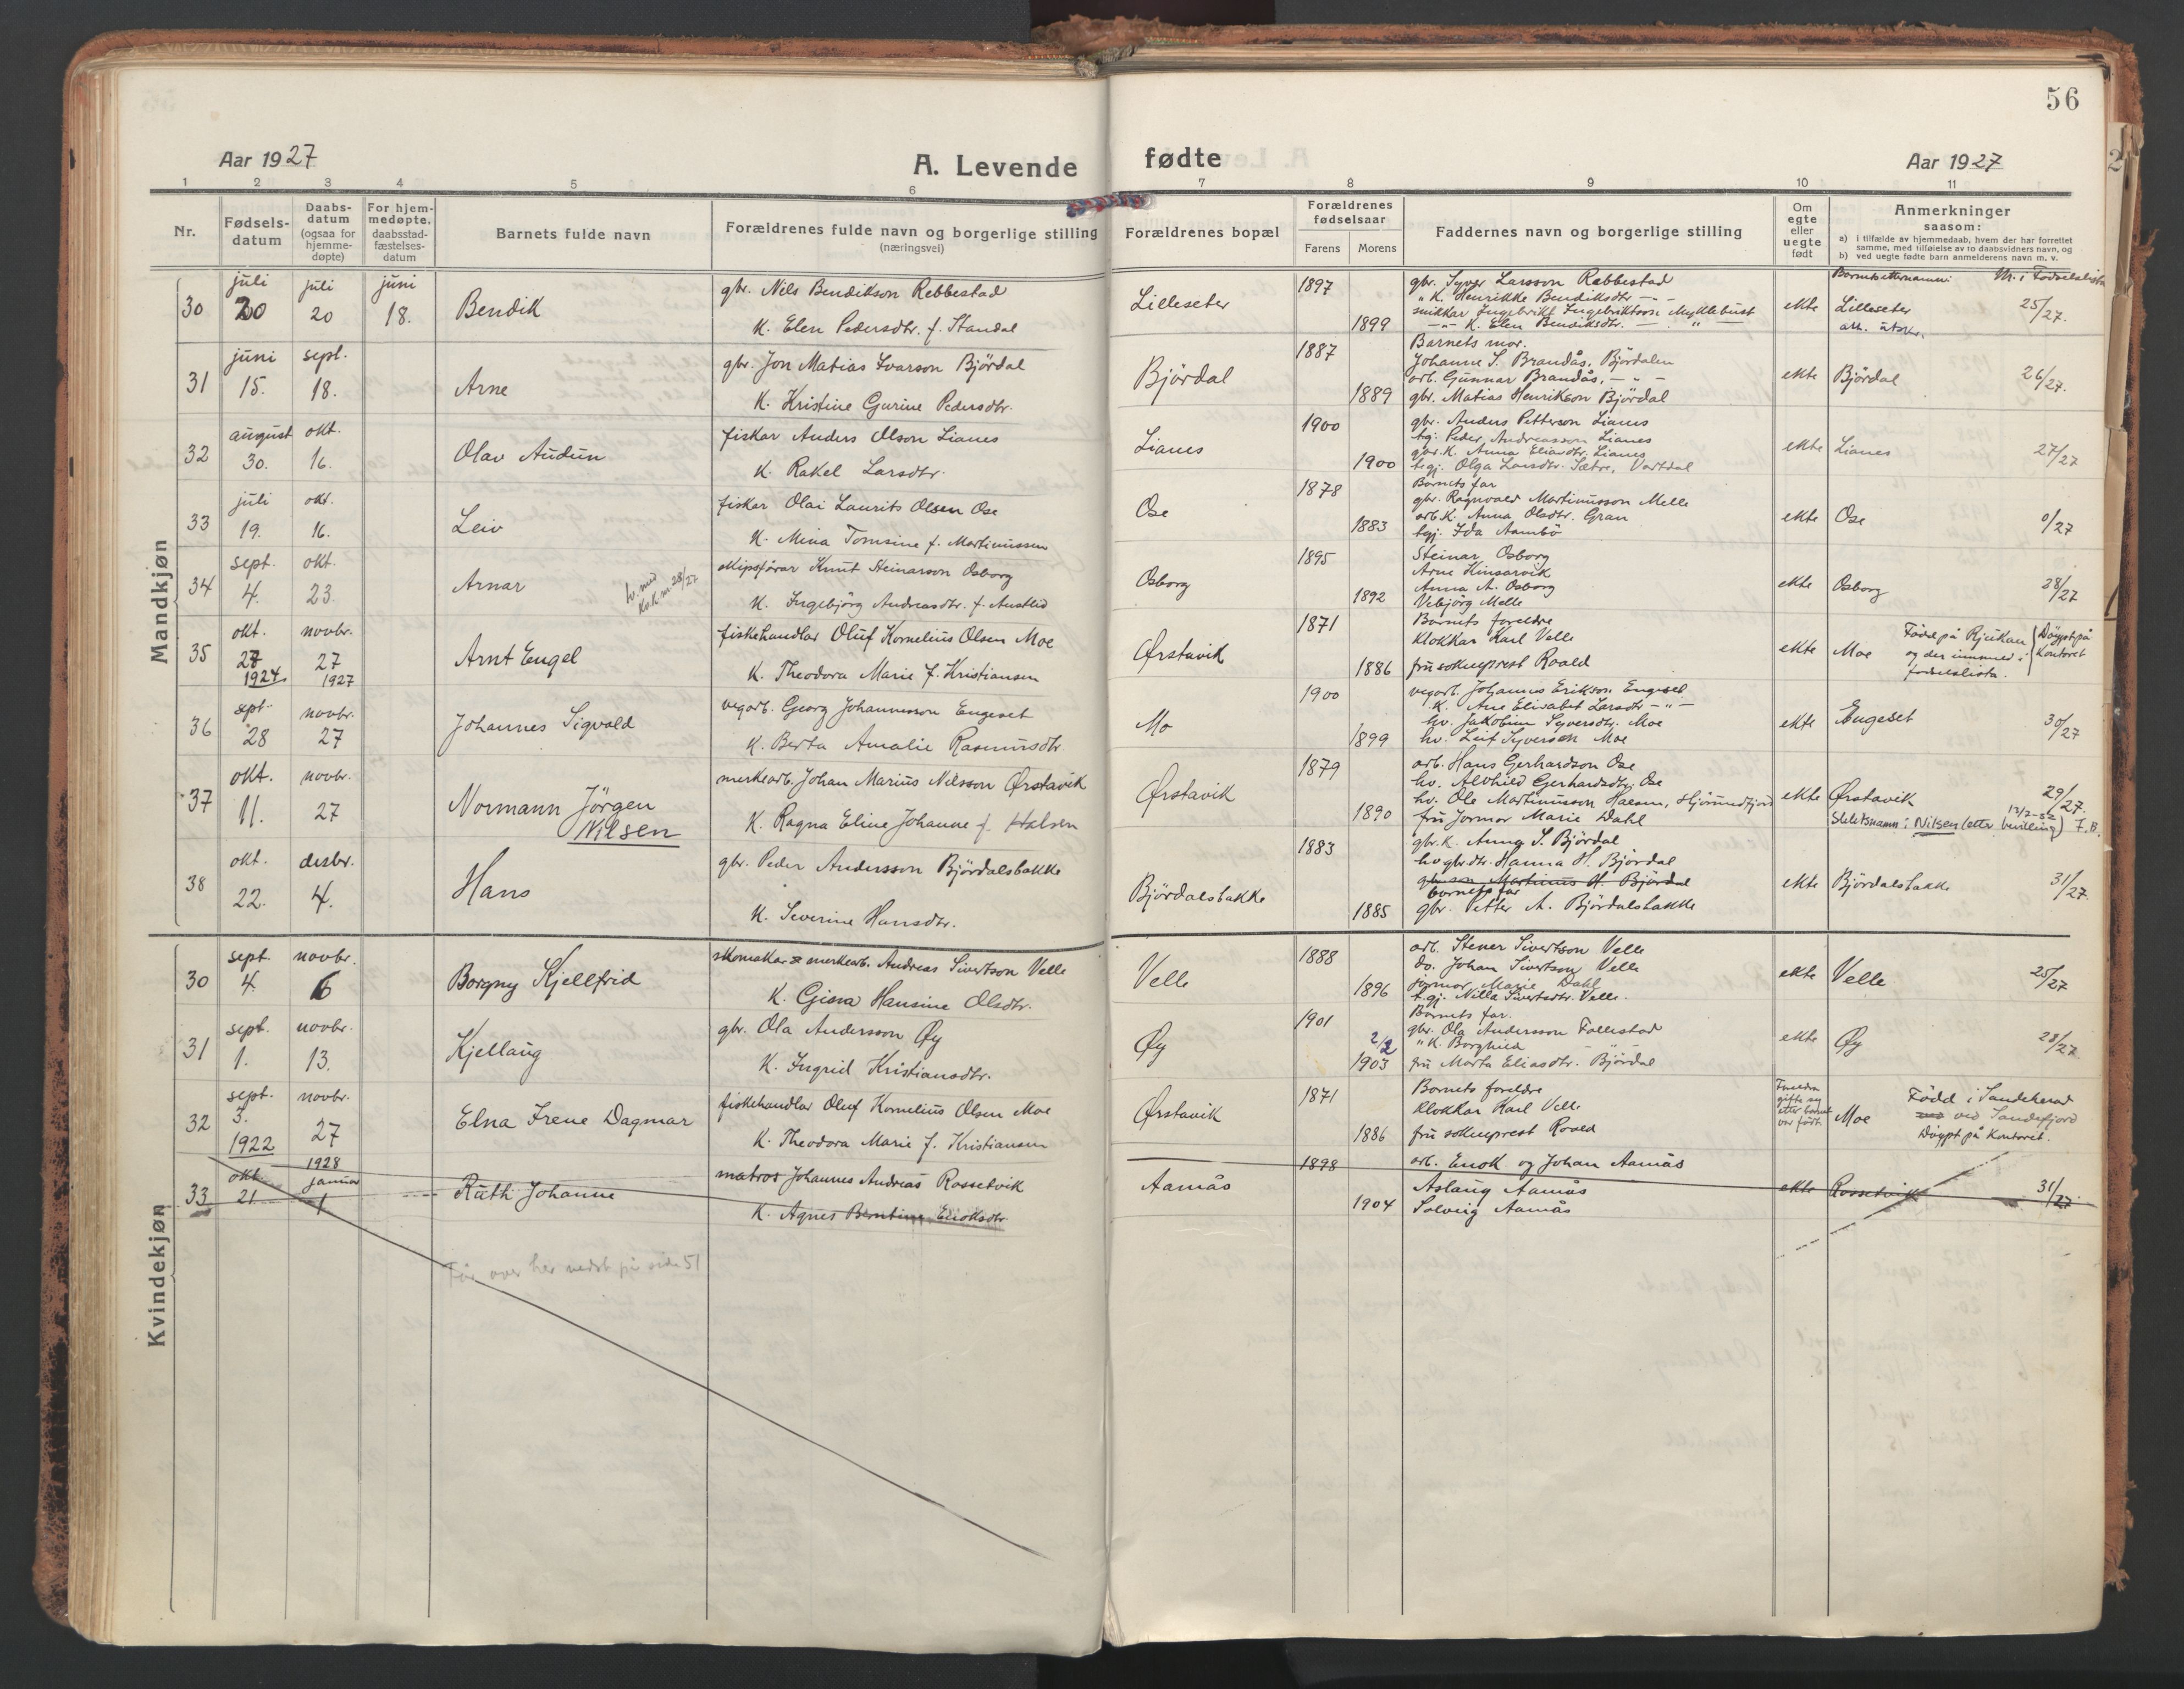 56
Aar 1927
A. Levende
fødte
Aar 1927
1 2 3 4 5 6 7 8 9 10 11
Nr.
Fødsels-
datum
Daabs-
datum
(ogsaa for
hjemme-
døpte)
For hjem-
medøpte,
daabsstad-
fæstelses-
datum
Barnets fulde navn
Forældrenes fulde navn og borgerlige stilling
(næringsvei)
Forældrenes bopæl
Forældrenes
fødselsaar
Farens
Morens
Faddernes navn og borgerlige stilling
Om
egte
eller
uegte
født
Anmerkninger
saasom:
a) i tilfælde av hjemmedaab, hvem der har forrettet
samme, med tilføielse av to daabsvidners navn, og
b) ved uegte fødte barn anmelderens navn m. v.
Mandkjøn
30
juli
20
juli
20
juni
18.
Bendik
gbr. Nils Bendikson Rebbestad
K. Elen Pedersdtr. f. Standal
Lilleseter
1897
1899
gbr. Syver Larsson Rebbestad
" K. Henrikke Bendiksdtr — " —
snikkar Ingebrikt Ingebriktson Myklebust
— " — K. Elen Bendiksdtr. — "
ekte
Barnets etternamn:
Nr. i Fødselslista
Lilleseter
25/27.
att. utskr.
31
juni
15.
sept.
18.
Arne
gbr. Jon Matias Ivarson Björdal
K. Kristine Gurine Pedersdtr.
Björdal
1887
1889
Barnets mor.
Johanne S. Brandås, Björdalen
arb. Gunnar Brandås, — " —
gbr. Matias Henrikson Björdal
ekte
Björdal
26/27.
32
august
30.
okt.
16.
Olav Audun
fiskar Anders Olson Lianes
K. Rakel Larsdtr.
Lianes
1900
1900
gbr. Anders Petterson Lianes
tg. Peder Andreasson Lianes
gbr. K. Anna Eliasdtr. Lianes
tegj. Olga Larsdtr. Sætre, Vartdal
ekte
Lianes
27/27
33
juli
19.
okt.
16.
Leiv
fiskar Olai Laurits Olsen Ose
K. Mina Tomsine f. Martinussen
Ose
1878
1883
Barnets far
gbr. Ragnvald Martinusson Melle
arb. K. Anna Olsdtr. Gran
tgj. Ida Aambö
ekte
Ose
0/27
34
sept.
4.
okt.
23.
Arnar
tv. med
Kv.K. nr. 28/27
skipsförar Knut Steinarson Osborg
K. Ingebjörg Andreasdtr. f. Austlid
Osborg
1895
1892
Steinar Osborg
Arne Kinsarvik
Anna A. Osborg
Vebjörg Melle
ekte
Osborg
28/27
35
okt.
27
1924
novbr.
27
1927
Arnt Engel
fiskehandlar Oluf Kornelius Olsen Moe
K. Theodora Marie f. Kristiansen
Ørstavik
1871
1886
Barnets foreldre
Klokkar Karl Velle
fru sokneprest Roald
ekte
Moe
Fødd på Rjukan
og der innmeld i
fødselslista.
Døypt på
Kontoret
36
sept.
28
novbr.
27
Johannes Sigvald
vegarb. Georg Johannesson Engeset
K. Berta Amalie Rasmusdtr.
Mo
1900
1899
vegarb. Johannes Erikson Engeset
" K. Ane Elisabet Larsdtr — " —
hv. Jakobine Syversdtr. Moe
hv. Leif Syversen Moe
ekte
Engeset
30/27
37
okt.
11.
novbr.
27
Normann Jörgen
Nilsen
merkearb. Johan Marius Nilsson Ørstavik
K. Ragna Eline Johanne f. Halsen
Ørstavik
1879
1890
arb. Hans Gerhardson Ose
hv. Alvhild Gerhardsdtr. Ose
hv. Ole Martinusson Halsen, Hjörundfjord
fru Jormor Marie Dahl
ekte
Ørstavik
29/27.
13/2-52
Slektsnamn: Nilsen (etter bevilling) F.B.
38
okt.
22.
desbr.
4.
Hans
gbr. Peder Andersson Björdalsbakke
K. Severine Hansdtr.
Björdalsbakke
1883
1885
gbr. K. Anna S. Björdal
hv gbr. dtr. Hanna H. Björdal
gbr. son Martinus H. Björdal
barnets far
gbr. Petter A. Björdalsbakke
ekte
Björdalsbakke
31/27.
Kvindekjøn
30
sept.
4.
novbr.
6
Borgny Kjellfrid
skomakar & merkearb. Andreas Sivertson Velle
K. Gina Hansine Olsdtr.
Velle
1888
1896
arb. Stener Sivertson Velle
do. Johan Sivertson Velle
jormor Marie Dahl
t.gj. Nilla Sivertsdtr. Velle.
ekte
Velle
25/27
31
sept.
1.
novbr.
13.
Kjellaug
gbr. Ola Andersson Øy
K. Ingrid Kristiansdtr.
Øy
1901
2/2
1903
Barnets far.
gbr. Ola Andersson Follestad
" K. Borghild — " —
fru Marta Eliasdtr. Björdal
ekte
Øy
28/27.
32
sept.
3.
1922
novbr.
27
Elna Irene Dagmar
fiskehandlar Oluf Kornelius Olsen Moe
K. Theodora Marie f. Kristiansen
Ørstavik
1871
1886
Barnets foreldre
Klokkar Karl Velle
fru sokneprest Roald
Foreldra
gifte seg
etter barnet
var född.
Moe
Född i Sandeherad
ved Sandefjord
Döypt på Kontoret.
33
okt.
21
1928
januar
1
Ruth Johanne
matros Johannes Andreas Rossetvik
K. Agnes Berntine Enoksdtr.
Aamås
1898
1904
arb. Enok og Johan Aamås
Aslaug Aamås
Solveig Aamås
ekte
Rossetvik
31/27
Før over her nedst på side 51